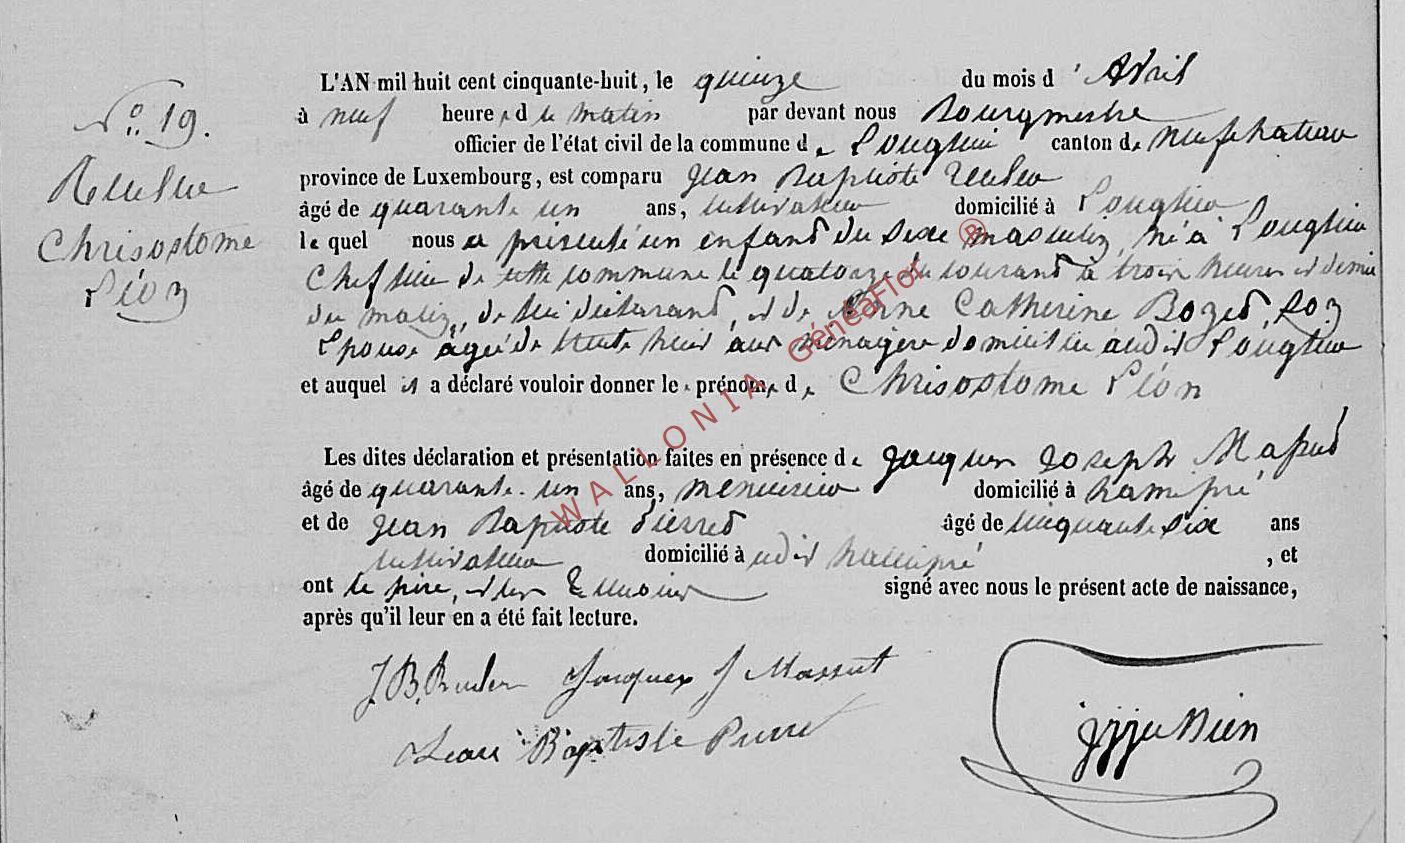 N° 19.
Reuler
Chrisostome
Léon
L'AN mil huit cent cinquante-huit, le quinze du mois d'Avril
à neuf heures du matin par devant nous Bourgmestre
officier de l'état civil de la commune de Longlier canton de neufchateau
province de Luxembourg, est comparu Jean Baptiste Reuler
âgé de quarante un ans, cultivateur domicilié à Longlier
lequel nous a présenté un enfant du sexe masculin, né à Longlier
Chef lieu de cette commune le quatorze du courant à trois heures et demie
du matin, de lui déclarant, et de Anne Catherine Bozet, son
Epouse agée de trente huit ans ménagère domiciliée audit Longlier
et auquel il a déclaré vouloir donner les prénoms de Chrisostome Léon
Les dites déclaration et présentation faites en présence de Jacques Joseph Massut
âgé de quarante-un ans, menuisier domicilié à hamipré
et de Jean Baptiste Pierret âgé de cinquante six ans
cultivateur domicilié à udit hamipré , et
ont le père, et les témoins signé avec nous le présent acte de naissance,
après qu'il leur en a été fait lecture.
J. B. Reuler Jacques J Massut
Jean Baptiste Pierret
WALLONIA GénéaFlor ®